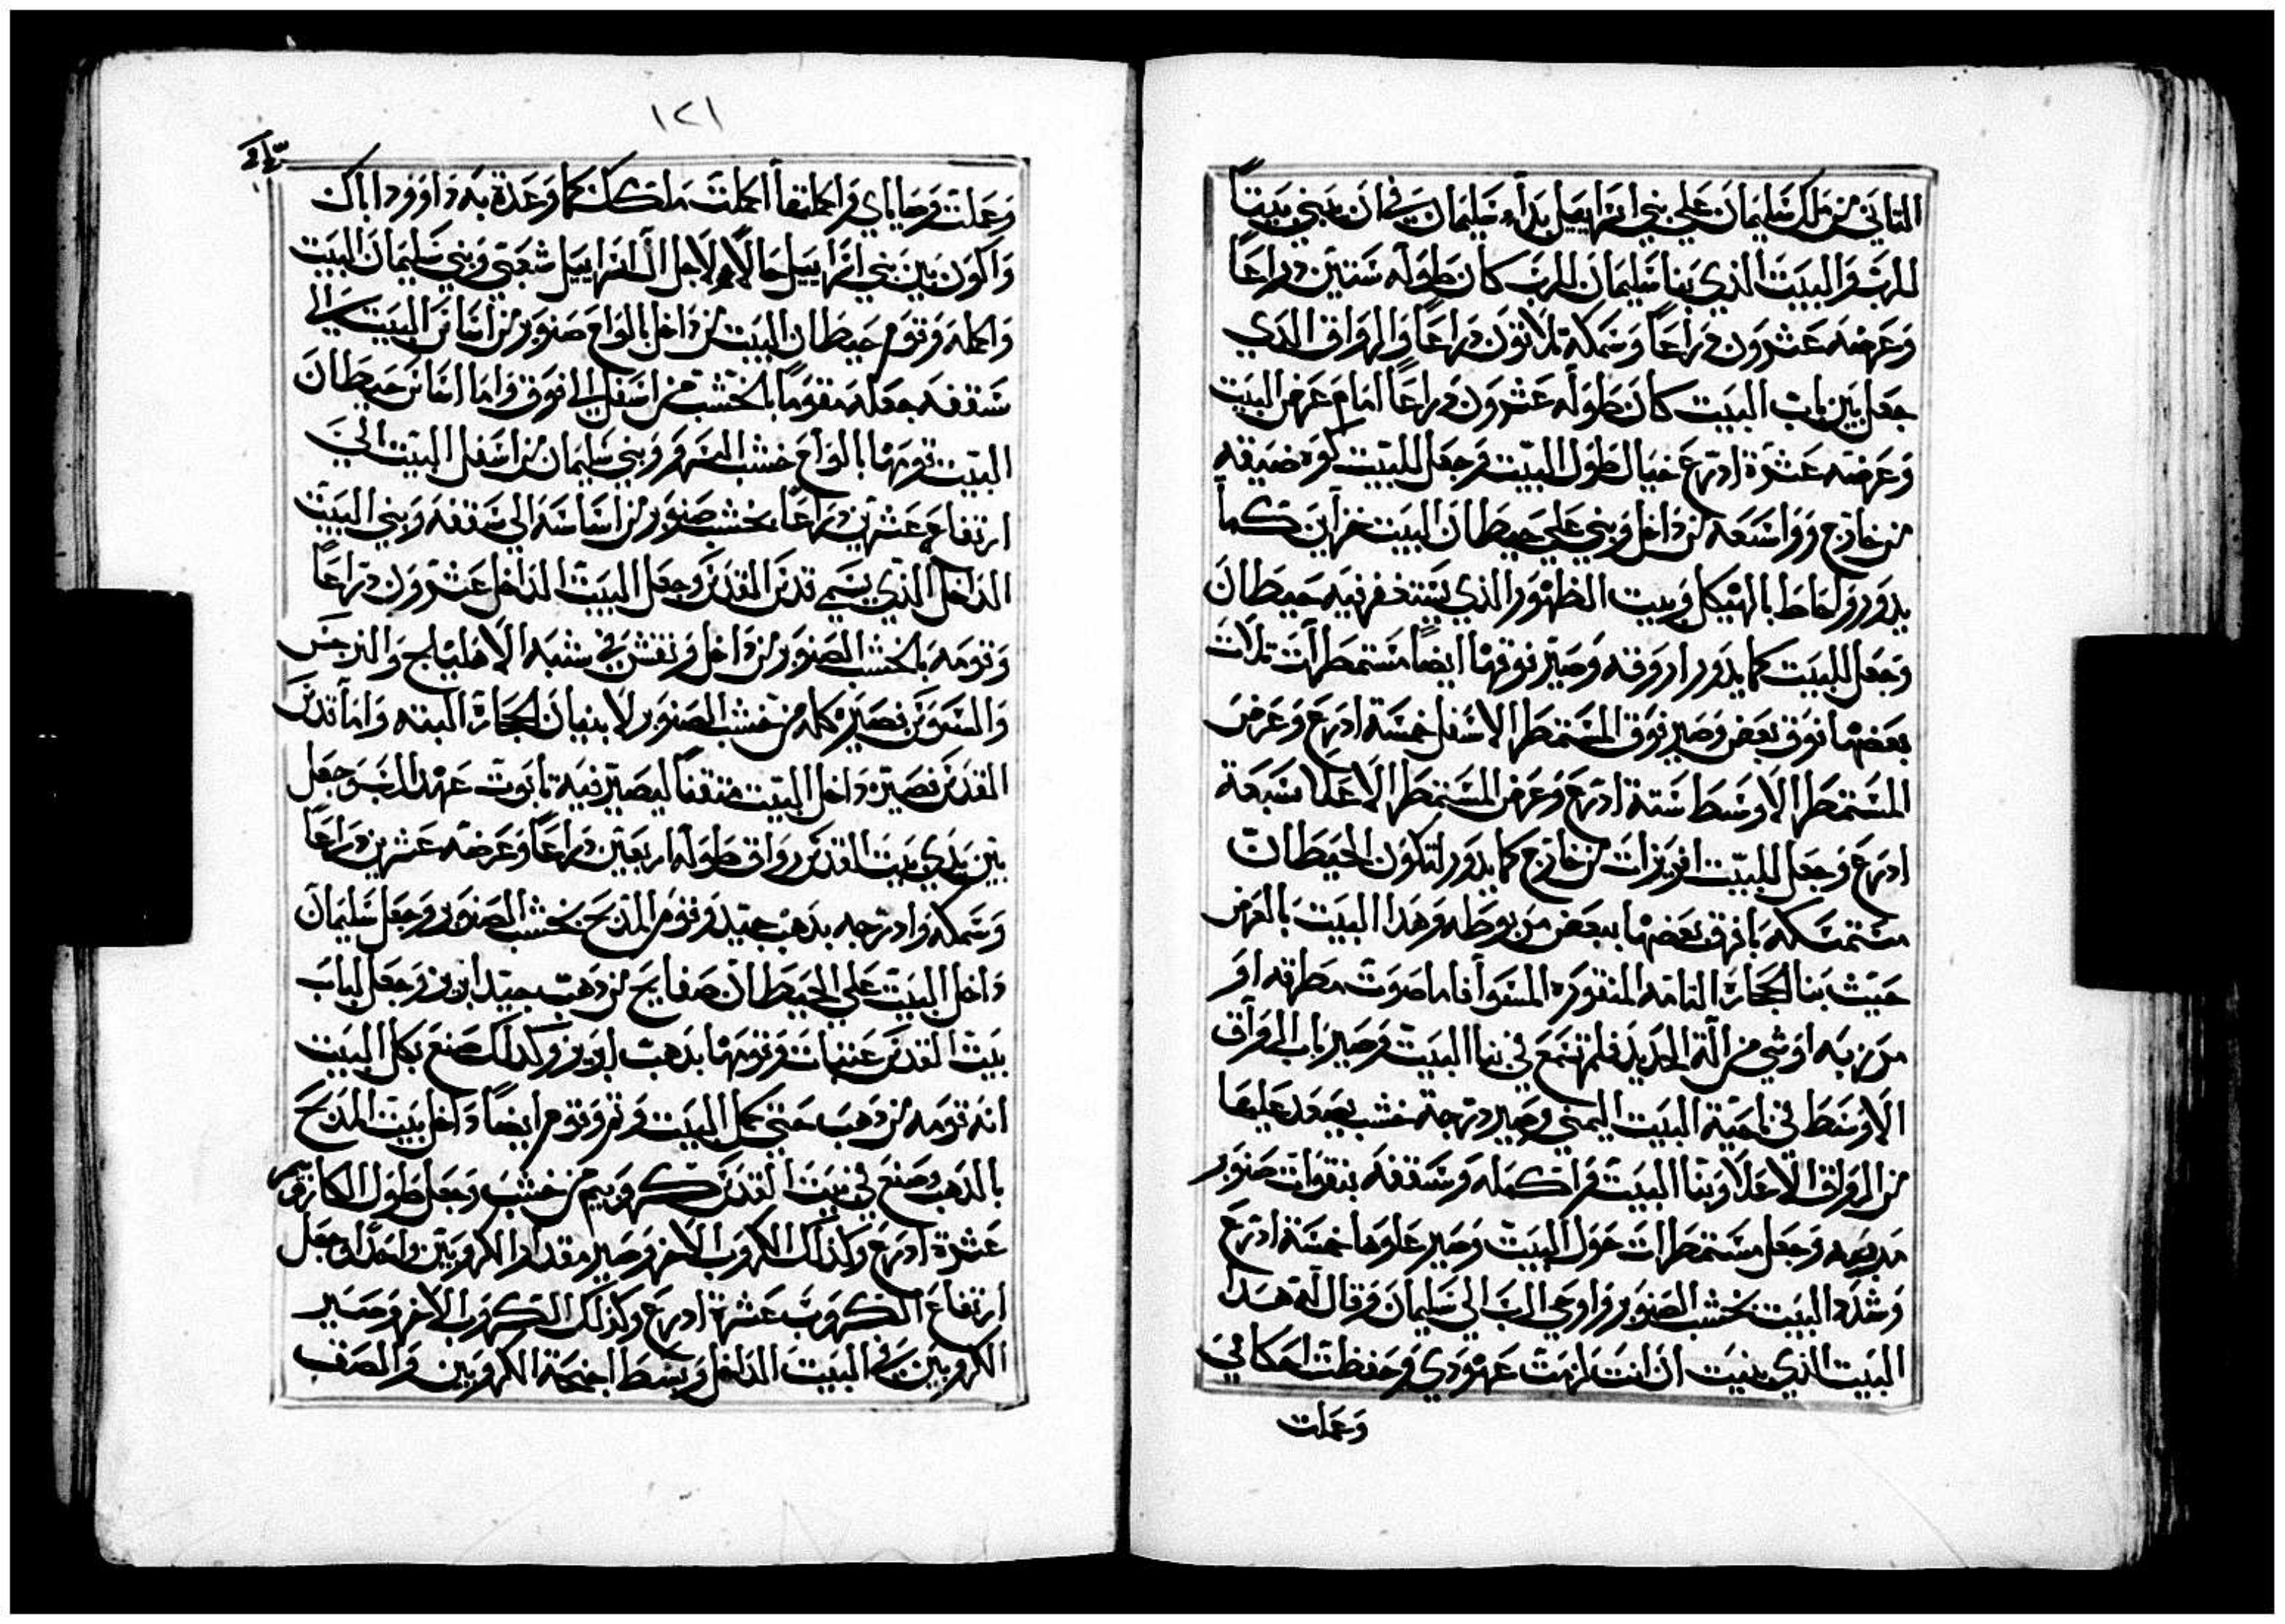 الثاني من ملك سليمان على بني اسراييل بدأ سليمان في ان يبني بيتاً
للرب والبيت الذي بنا سليمان للرب كان طوله ستين دراعاً
وعرضه عشرون دراعاً وسمكه تلاتون دراعاً والرواق الدي
جعل بين باب البيت كان طوله عشرون دراعاً امام عرض البيت
وعرضه عشرة ادرع خيال طول البيت وجعل للبيت كوه ضيقه
من خارج وواسعه من داخل وبني علي حيطان البيت خزاين كما
يدور ولحاط بالهيكل وبيت الظهور الذي يستغفر فيه حيطان
وجعل للبيت كما يدور اروقه وصير فوقها ايضاً مستمطرات تلات
بعضها فوق بعض وصير فوق المستمطر الاسفل خمسة ادرع وعرض
المستمطر الاوسط ستة ادرع وعرض المستمطر الاعلا سبعة
ادرع وجعل للبيت افريزات من خارج كما يدور لتكون الحيطان
متمسكه بافرق بعضها ببعض مربوطه وهدا البيت بالعرض
حيث بنا الحجارة التامه المنقوره المسوا فاما صوت مطرقه او
مرزبه او شي من الة الحديد فلم تسمع في بنا البيت وصير باب الرواق
الاوسط في ناحية البيت اليمني وصير درجة خشب يصعد عليها
من الرواق الاعلا وبنا البيت واكمله وسقفه بنقوات صنوبر
مربعه وجعل مستمطرات حول البيت وصير علوها خمسة ادرع
وشد البيت بخشب الصنوبر واوحي الرب الي سليمان وقال له هدا
البيت الذي بنيت ان انت لزمت عهودي وحفظت احكامي
وعملت
١٢١
وعملت وصاياي واكملتها اكملت ملكك كما وعدة به داوود اباك
واكون بين بني اسراييل حالاً ولا اخل ال اسراييل شعبي وبني سليمان البيت
واكمله وقوم حيطان البيت من داخل بالواح صنوبر من اساس البيت الي
سقفه جعله مقوماً بالخشب من اسفل الي فوق واما اساس حيطان
البيت قومها بالواح خشب السرو وبني سليمان من اسفل البيت الي
ارتفاع عشرين دراعاً بخشب صنوبر من اساسة الي سقفه وبني البيت
الداخل الذي يسمي قدس القدس وجعل البيت الداخل عشرون دراعاً
وقومه بالخشب الصنوبر من داخل ونقش في شبه الاهليلج والنرجس
والسوسن نصيره كله من خشب الصنوبر لا بنيان الحجارة البته واما قدس
القدس فصيره داخل البيت متقناً ليصير فيه تابوت عهد الرب وجعل
بين يدي بيت القدس رواق طوله اربعين دراعاً وعرضه عشرين دراعاً
وسمكه وادرجه بدهب جيد وقوم المدبح بخشب الصنوبر وجعل سليمان
داخل البيت علي الحيطان صفايح من دهب جيد ابريز وجعل لباب
بيت القدس عتبات وقومها بدهب ابريز وكدلك صنع بكل البيت
انه قومه من دهب حتي كمل البيت وتم وقوم ايضاً داخل بيت المدبح
بالدهب وصنع في بيت القدس كروبيم من خشب وجعل طول الكاروبيم
عشرة ادرع وكذلك الكروب الاخر وصير مقدار الكروبين واحداً وجعل
ارتفاع الكروب عشرة ادرع وكذلك الكروب الاخر وصير
الكروبين في البيت الداخل وبسط اجنحة الكروبين والصق